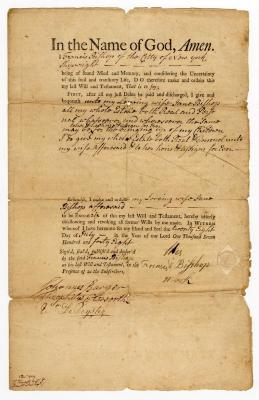 In the Name of God, Amen.
I Francis Bishop of the City of New York
Shipwright
being of sound Mind and Memory, and considering the Uncertainty
of this frail and transitory Life, DO therefore make and ordain this
my last Will and Testament, That is to say;
FIRST, after all my just Debts be paid and discharged, I give and
bequeath unto my Loving wife Jane Bishop
all my whole Estate both Real and
not whatsoever and wheresoever the same
may be for the bringing up of my Children
I do give my whole Estate both Real & Personal unto
my wife aforesaid & to her heirs & assigns for Ever
Likewise, I make and ordain my Loving wife Jane
Bishop aforesaid
to be Execut of this my last Will and Testament, hereby utterly
disallowing and revoking all former Wills by me made. In WITNESS
whereof I have hereunto set my Hand and Seal the twenty Eight
Day of July in the Year of our Lord One Thousand Seven
Hundred and forty Eight
Sign'd, Seal'd, publish'd and declar'd
by the said Francis Bishop
as his last Will and Testament, in the
Presence of us the Subscribers.
his
Francis Bishop
mark
Johannes Burger